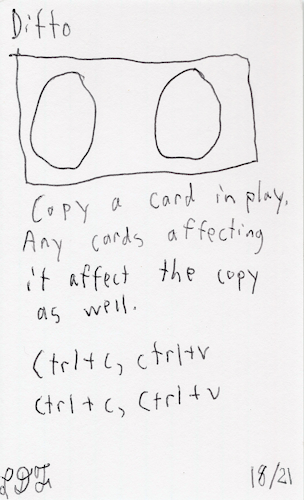 Ditto
Copy a card in play.
Any cards affecting
it affect the copy
as well.
Ctrl+c, ctrl+v
ctrl+c, Ctrl+v
18/21